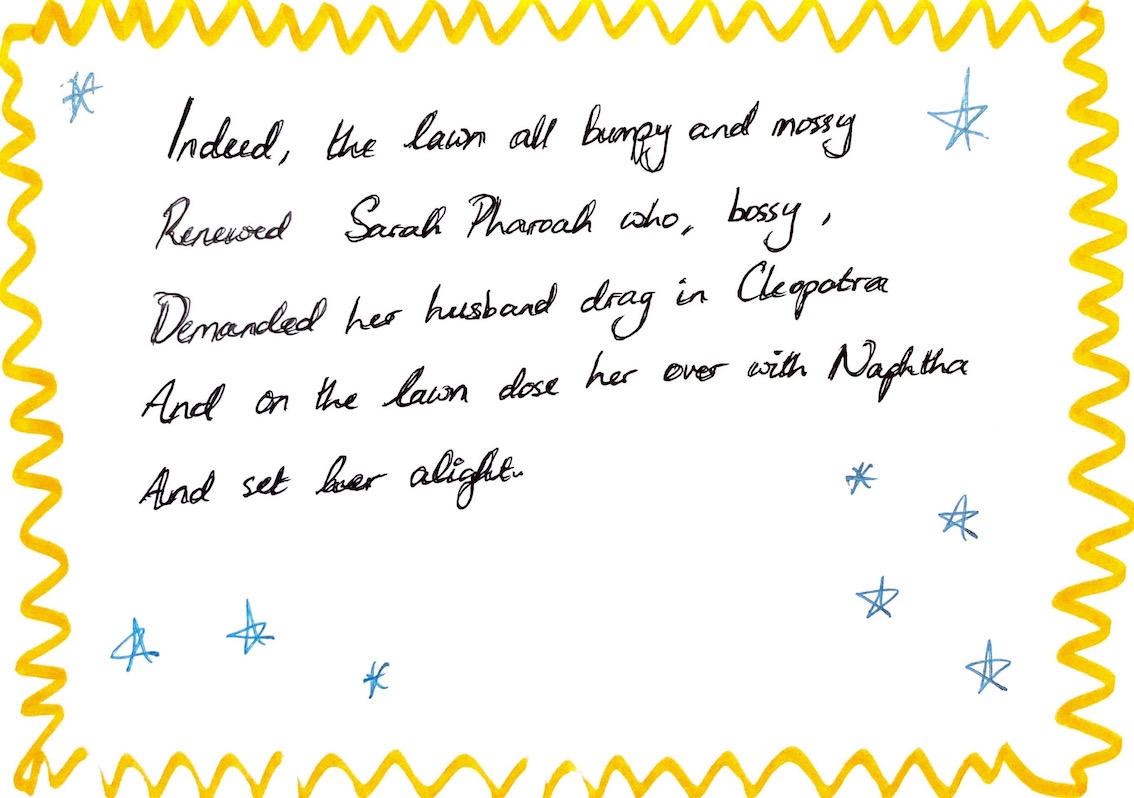 Indeed, the lawn all bumpy and mossy
Renewed Sarah Pharoah who, bossy,
Demanded her husband drag in Cleopatra
And on the lawn dose her over with Naphtha
And set her alight.